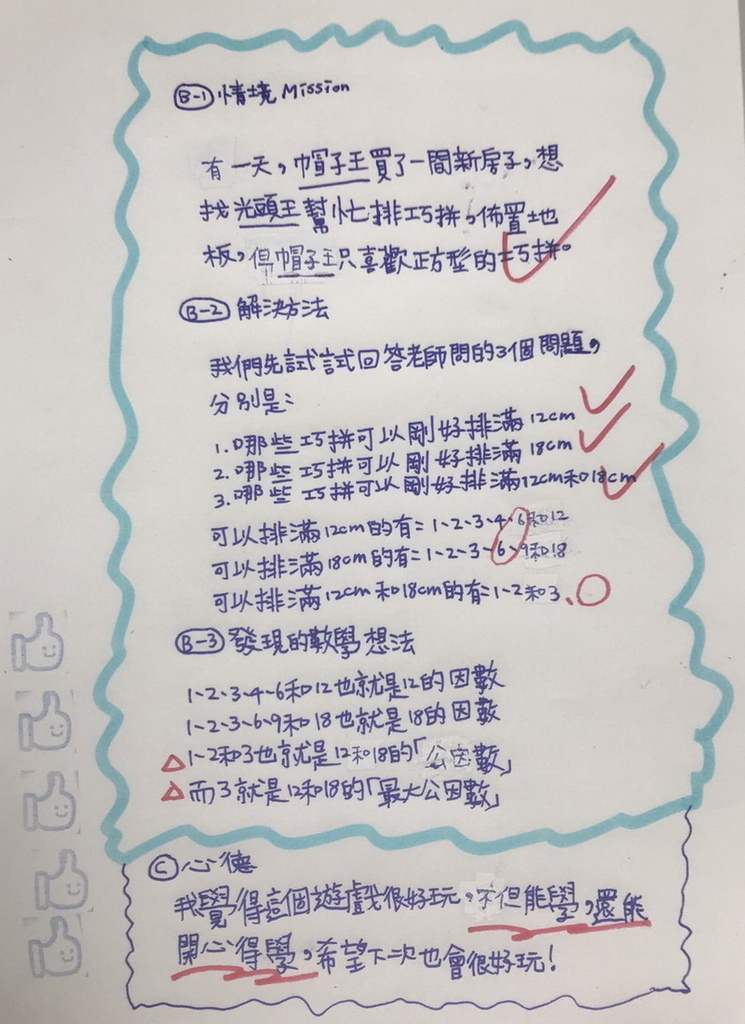 B-1 情境 Mission
有一天，帽子王買了一間新房子，想
找光頭王幫忙排巧拼。佈置地
板，但帽子王只喜歡正方型的巧拼。
B-2 解決方法
我們先試試回答老師問的3個問題，
分別是：
1. 哪些巧拼可以剛好排滿12cm
2. 哪些巧拼可以剛好排滿18cm
3. 哪些巧拼可以剛好排滿12cm和18cm
可以排滿12cm的有：1、2、3、4、6和12
可以排滿18cm的有：1、2、3、6、9和18
可以排滿12cm和18cm的有：1、2和3、
B-3 發現的數學想法
1、2、3、4、6和12也就是12的因數
1、2、3、6、9和18也就是18的因數
△1、2和3也就是12和18的「公因數」
△而3就是12和18的「最大公因數」
C 心德
我覺得這個遊戲很好玩，不但能學，還能
開心得學，希望下次也會很好玩！